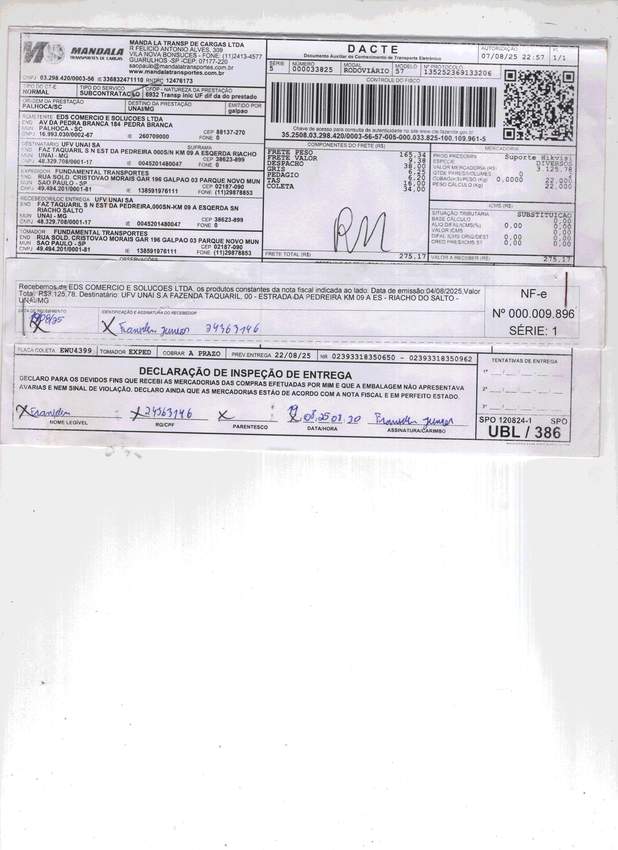 MANDALA
TRANSPORTES DE CARGAS
MANDALA TRANSP DE CARGAS LTDA
R FELICIO ANTONIO ALVES, 309
VILA NOVA BONSUCES - FONE: (11)2413-4577
GUARULHOS -SP -CEP: 07177-220
saopaulo@mandalatransportes.com.br
www.mandalatransportes.com.br
CNPJ 03.298.420/0003-56 IE 336832471110 RNTRC 12476173
DACTE
Documento Auxiliar de Conhecimento de Transporte Eletrônico
AUTORIZAÇÃO
07/08/25 22:57
1/1
SÉRIE 5
NÚMERO 000033825
MODAL RODOVIÁRIO
MODELO 57
Nº PROTOCOLO 135252369133206
CONTROLE DO FISCO
Chave de acesso para consulta de autenticidade no site www.cte.fazenda.gov.br
35.2508.03.298.420/0003-56-57-005-000.033.825-100.109.961-5
TIPO DO CT-E NORMAL
TIPO DO SERVIÇO SUBCONTRATAÇÃO
CFOP - NATUREZA DA PRESTAÇÃO
6932 Transp inic UF dif da do prestado
ORIGEM DA PRESTAÇÃO PALHOCA/SC
DESTINO DA PRESTAÇÃO UNAI/MG
EMITIDO POR galpao
REMETENTE EDS COMERCIO E SOLUCOES LTDA
END AV DA PEDRA BRANCA 184 PEDRA BRANCA
MUN PALHOCA - SC CEP 88137-270
CNPJ 16.993.030/0002-67 IE 260709000 FONE 0
DESTINATÁRIO UFV UNAI SA SUFRAMA
END FAZ TAQUARIL S N EST DA PEDREIRA 000S/N KM 09 A ESQERDA RIACHO
MUN UNAI - MG CEP 38623-899
CNPJ 48.329.708/0001-17 IE 0045201480047 FONE 0
EXPEDIDOR FUNDAMENTAL TRANSPORTES
END RUA SOLD. CRISTOVAO MORAIS GAR 196 GALPAO 03 PARQUE NOVO MUN
MUN SAO PAULO - SP CEP 02187-090
CNPJ 49.494.201/0001-81 IE 138591976111 FONE (11)29878853
RECEBEDOR/LOC ENTREGA UFV UNAI SA
END FAZ TAQUARIL S N EST DA PEDREIRA,000SN-KM 09 A ESQERDA SN
RIACHO SALTO
MUN UNAI - MG CEP 38623-899
CNPJ 48.329.708/0001-17 IE 0045201480047 FONE 0
TOMADOR FUNDAMENTAL TRANSPORTES
END RUA SOLD. CRISTOVAO MORAIS GAR 196 GALPAO 03 PARQUE NOVO MUN
MUN SAO PAULO - SP CEP 02187-090
CNPJ 49.494.201/0001-81 IE 138591976111 FONE (11)29878853
OBSERVAÇÕES
COMPONENTES DO FRETE (R$)
FRETE PESO 165,34
FRETE VALOR 9,38
DESPACHO 38,00
GRIS
PEDAGIO
TAS 16,00
COLETA 34,00
FRETE TOTAL (R$) 275,17
MERCADORIA
PROD PREDOMIN Suporte Hikvisi
ESPÉCIE DIVERSOS
VALOR MERCADORIA (R$) 3.125,78
QTDE PARES/VOLUMES 0
CUBAGEM/PESO (Kg) 0,0000 22,000
PESO CÁLCULO (Kg) 22,000
ICMS (R$)
SITUAÇÃO TRIBUTÁRIA SUBSTITUICAO
BASE CÁLCULO 0,00
ALIQ DIFAL/ICMS(%) 0,00 0,00
VALOR ICMS 0,00
DIFAL ICMS ORIG/DEST 0,00 0,00
CRED PRES/ICMS ST 0,00 0,00
VALOR A RECEBER (R$) 275,17
Recebemos de EDS COMERCIO E SOLUCOES LTDA, os produtos constantes da nota fiscal indicada ao lado. Data de emissão 04/08/2025,Valor
Total: R$3.125,78. Destinatário: UFV UNAI S A FAZENDA TAQUARIL, 00 - ESTRADA DA PEDREIRA KM 09 A ES - RIACHO DO SALTO -
UNAI/MG
NF-e
Nº 000.009.896
SÉRIE: 1
DATA DE RECEBIMENTO
IDENTIFICAÇÃO E ASSINATURA DO RECEBEDOR
Junior 24363146
PLACA COLETA EWU4399 TOMADOR EXPED COBRAR A PRAZO PREV ENTREGA 22/08/25 NR 02393318350650 - 02393318350962
DECLARAÇÃO DE INSPEÇÃO DE ENTREGA
DECLARO PARA OS DEVIDOS FINS QUE RECEBI AS MERCADORIAS DAS COMPRAS EFETUADAS POR MIM E QUE A EMBALAGEM NÃO APRESENTAVA
AVARIAS E NEM SINAL DE VIOLAÇÃO. DECLARO AINDA QUE AS MERCADORIAS ESTÃO DE ACORDO COM A NOTA FISCAL E EM PERFEITO ESTADO.
24363146
NOME LEGÍVEL RG/CPF PARENTESCO DATA/HORA ASSINATURA/CARIMBO
TENTATIVAS DE ENTREGA
1ª
2ª
3ª
SPO 120824-1 SPO
UBL / 386